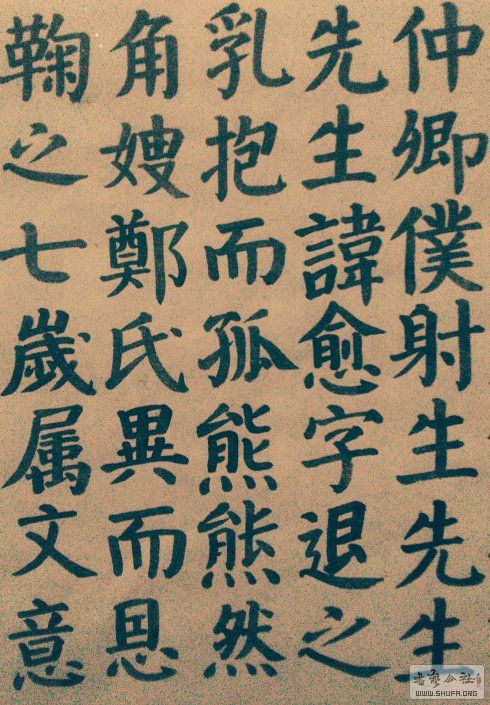 仲卿僕射生先生
先生諱愈字退之
乳抱而孤熊熊然
角嫂鄭氏異而恩
鞠之七歲属文意
書藝公社
WWW.SHUFA.ORG